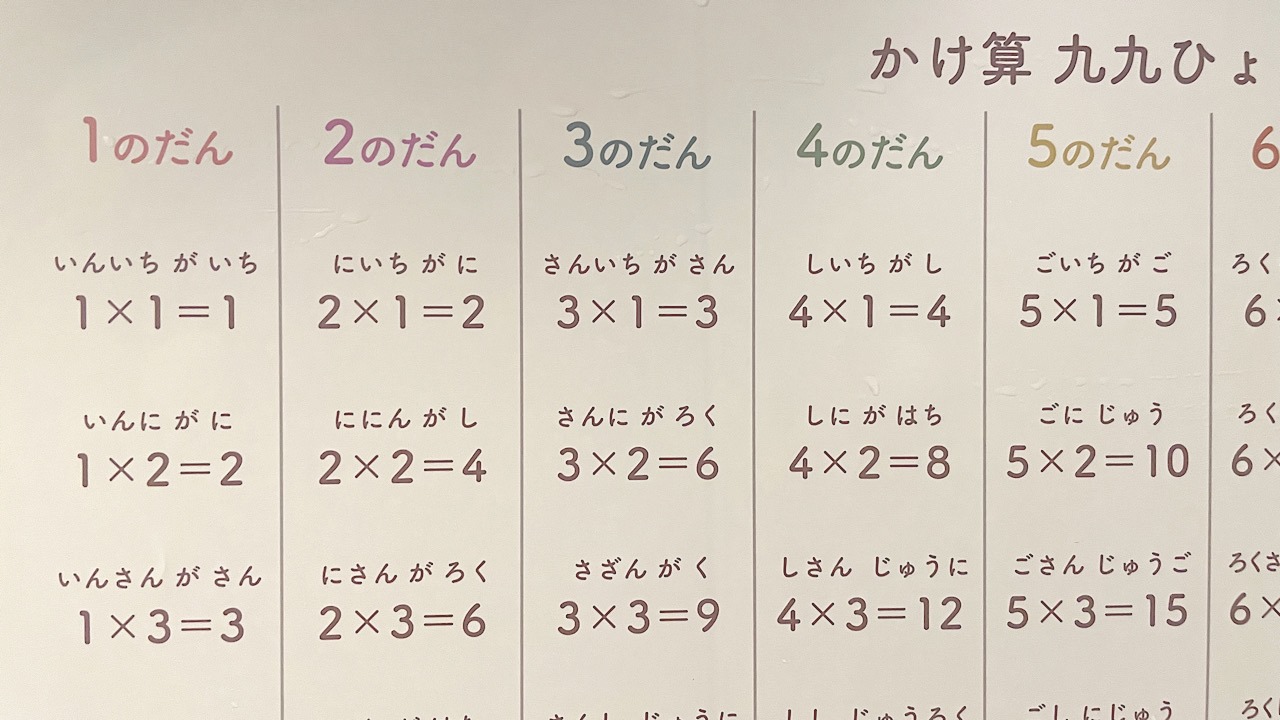 かけ算 九九ひょ
1のだん
いんいち が いち
1×1=1
いんに が に
1×2=2
いんさん が さん
1×3=3
2のだん
にいち が に
2×1=2
ににん が し
2×2=4
にさん が ろく
2×3=6
3のだん
さんいち が さん
3×1=3
さんに が ろく
3×2=6
さざん が く
3×3=9
4のだん
しいち が し
4×1=4
しに が はち
4×2=8
しさん じゅうに
4×3=12
5のだん
ごいち が ご
5×1=5
ごに じゅう
5×2=10
ごさん じゅうご
5×3=15
6
ろく
6×
ろく
6×
ろくさ
6×